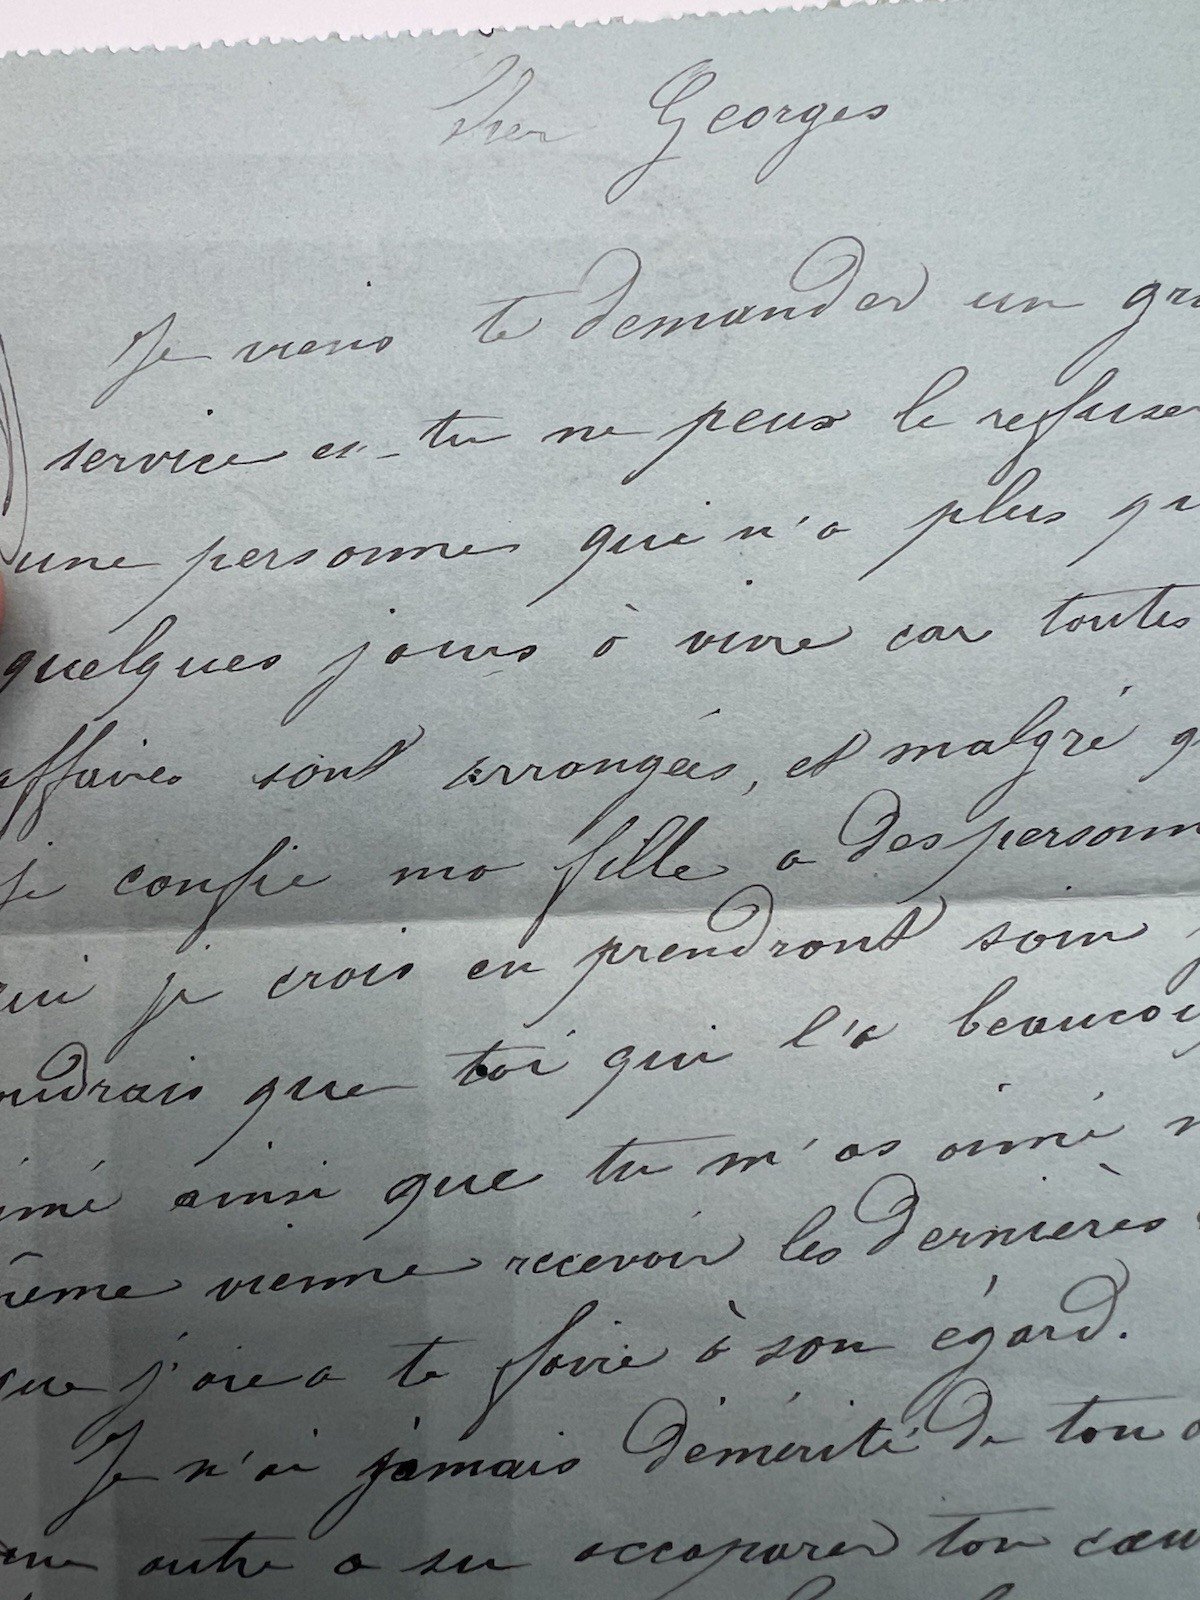 Cher Georges
Je viens te demander un gra
service et tu ne peux le refuser
une personne qui n'a plus qu
quelques jours à vivre car toutes
affaires sont arrangées, et malgré q
je confie ma fille a des personn
ui je crois en prendront soin j
oudrais que toi qui l'a beaucoup
imé ainsi que tu m'as aimé m
même vienne recevoir les dernières
que j'aie a te faire à son égard.
Je n'ai jamais démérité de ton
une autre a su accaparer ton cœu